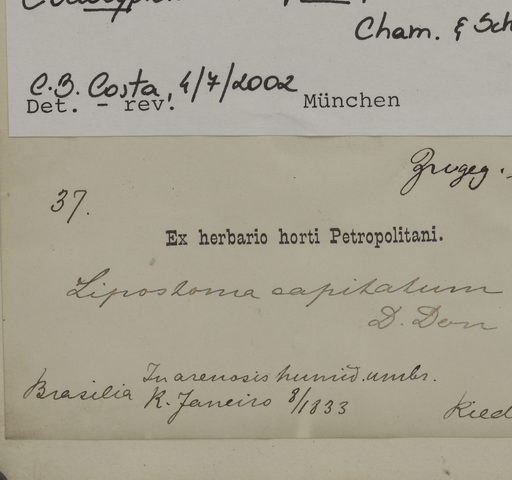 Cham. & Sch
C.B. Costa, 4/7/2002
Det. - rev. München
Zugeg.
37.
Ex herbario horti Petropolitani.
Lipostoma capitatum
D. Don
In arenosis humid. umbr.
Brasilia R. Janeiro 8/1833
Ried